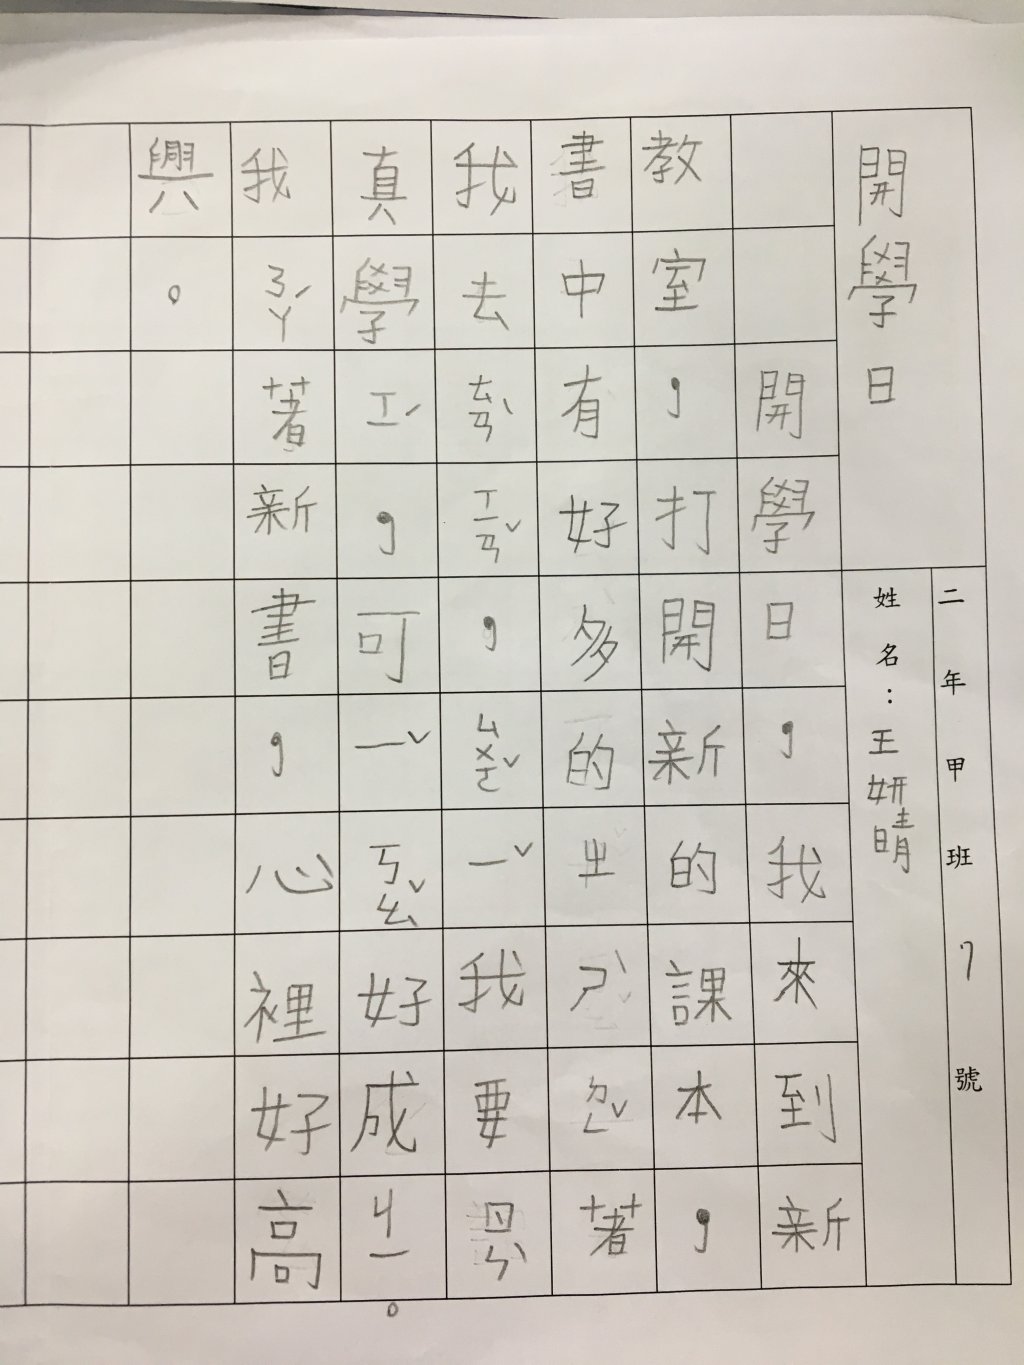 開學日
二年甲班 7 號
姓名：王妍晴
開學日，我來到新
教室，打開新的課本，
書中有好多的ㄓㄕˋㄉㄥˇ著
我去ㄊㄢˋㄒㄧㄢˇ，ㄙㄨㄛˇㄧˇ我要ㄖㄣˋ
真學ㄒㄧˊ，可ㄧˇㄎㄠˇ好成ㄐㄧ。
我ㄋㄚˊ著新書，心裡好高
興。